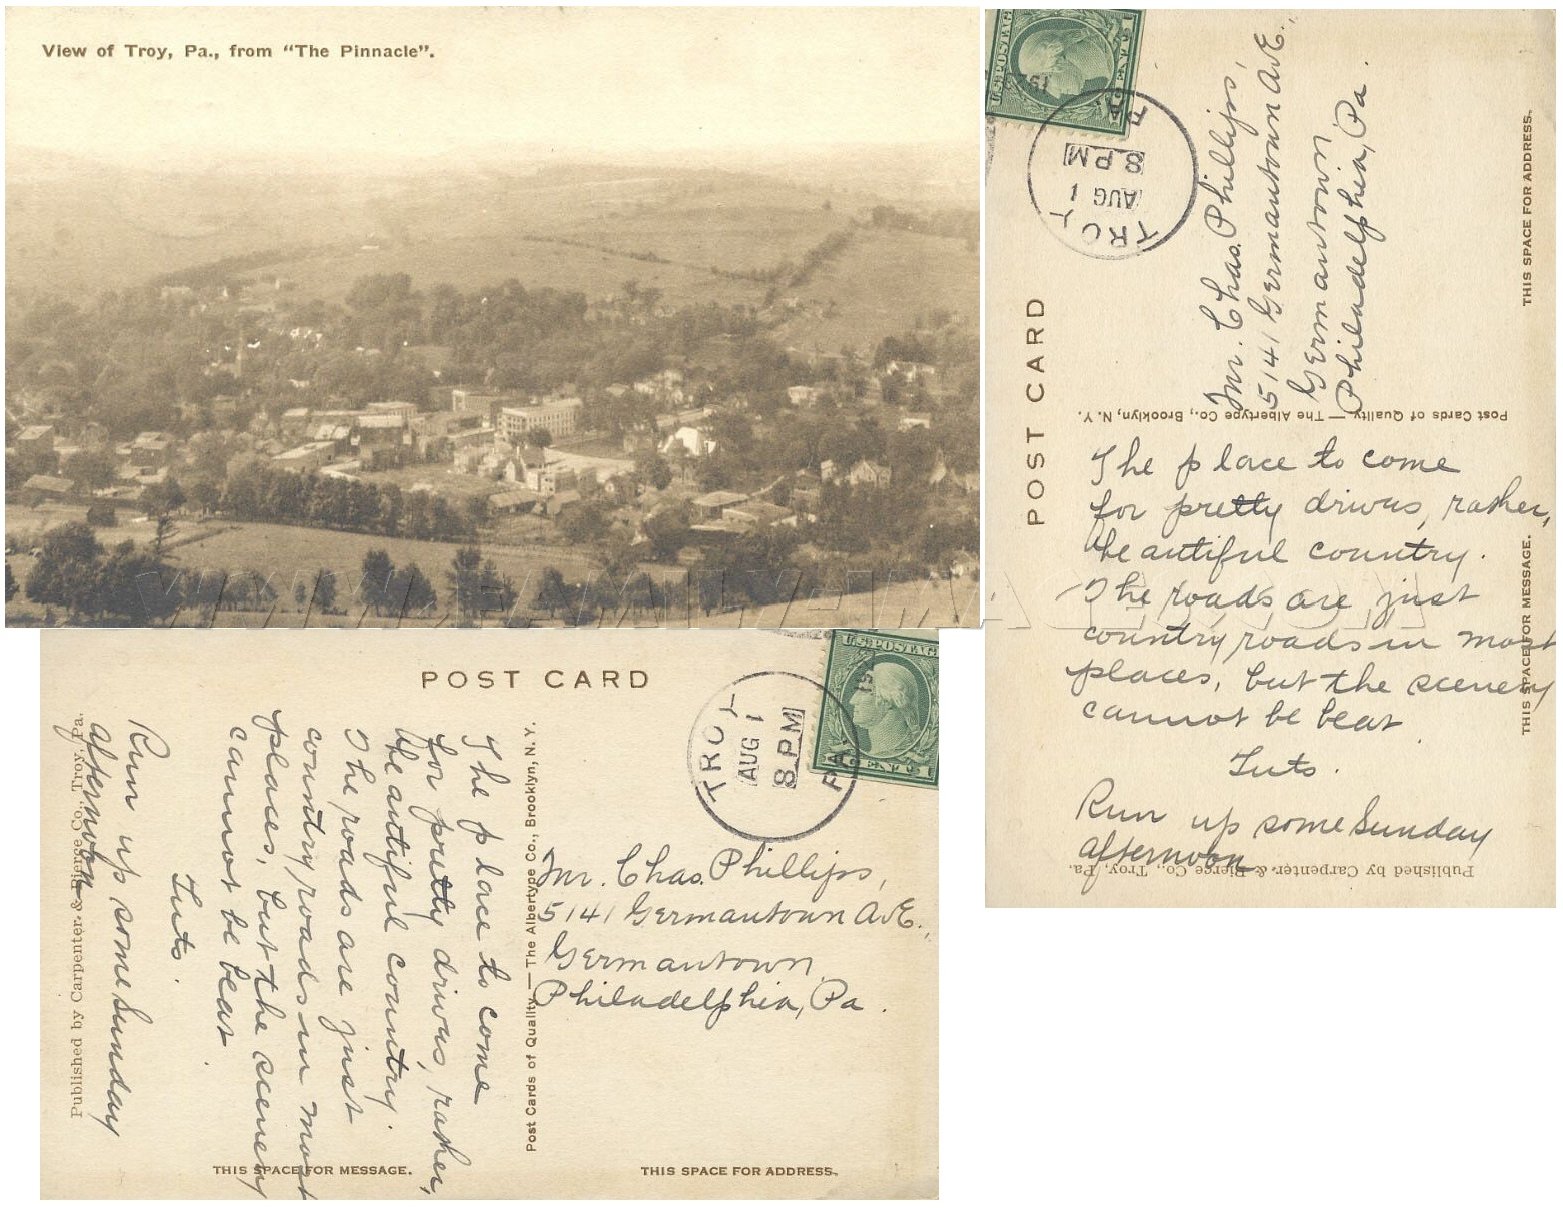 View of Troy, Pa., from "The Pinnacle".
POST CARD
U.S. POSTAGE
TROY
AUG 1
8 PM
PA.
Mr. Chas. Phillips,
5141 Germantown Ave.,
Germantown,
Philadelphia, Pa.
THIS SPACE FOR ADDRESS.
Post Cards of Quality. — The Albertype Co., Brooklyn, N. Y.
The place to come
for pretty drives, rather,
beautiful country.
The roads are just
country roads in most
places, but the scenery
cannot be beat.
Tuts.
Run up some Sunday
afternoon
THIS SPACE FOR MESSAGE.
Published by Carpenter & Pierce Co., Troy, Pa.
POST CARD
U.S. POSTAGE
TROY
AUG 1
8 PM
PA.
The place to come
for pretty drives, rather,
beautiful country.
The roads are just
country roads in most
places, but the scenery
cannot be beat.
Tuts.
Run up some Sunday
afternoon
Published by Carpenter & Pierce Co., Troy, Pa.
Post Cards of Quality. — The Albertype Co., Brooklyn, N. Y.
Mr. Chas. Phillips,
5141 Germantown Ave.,
Germantown,
Philadelphia, Pa.
THIS SPACE FOR MESSAGE.
THIS SPACE FOR ADDRESS.
WWW.FAMILY-IMAGE.COM